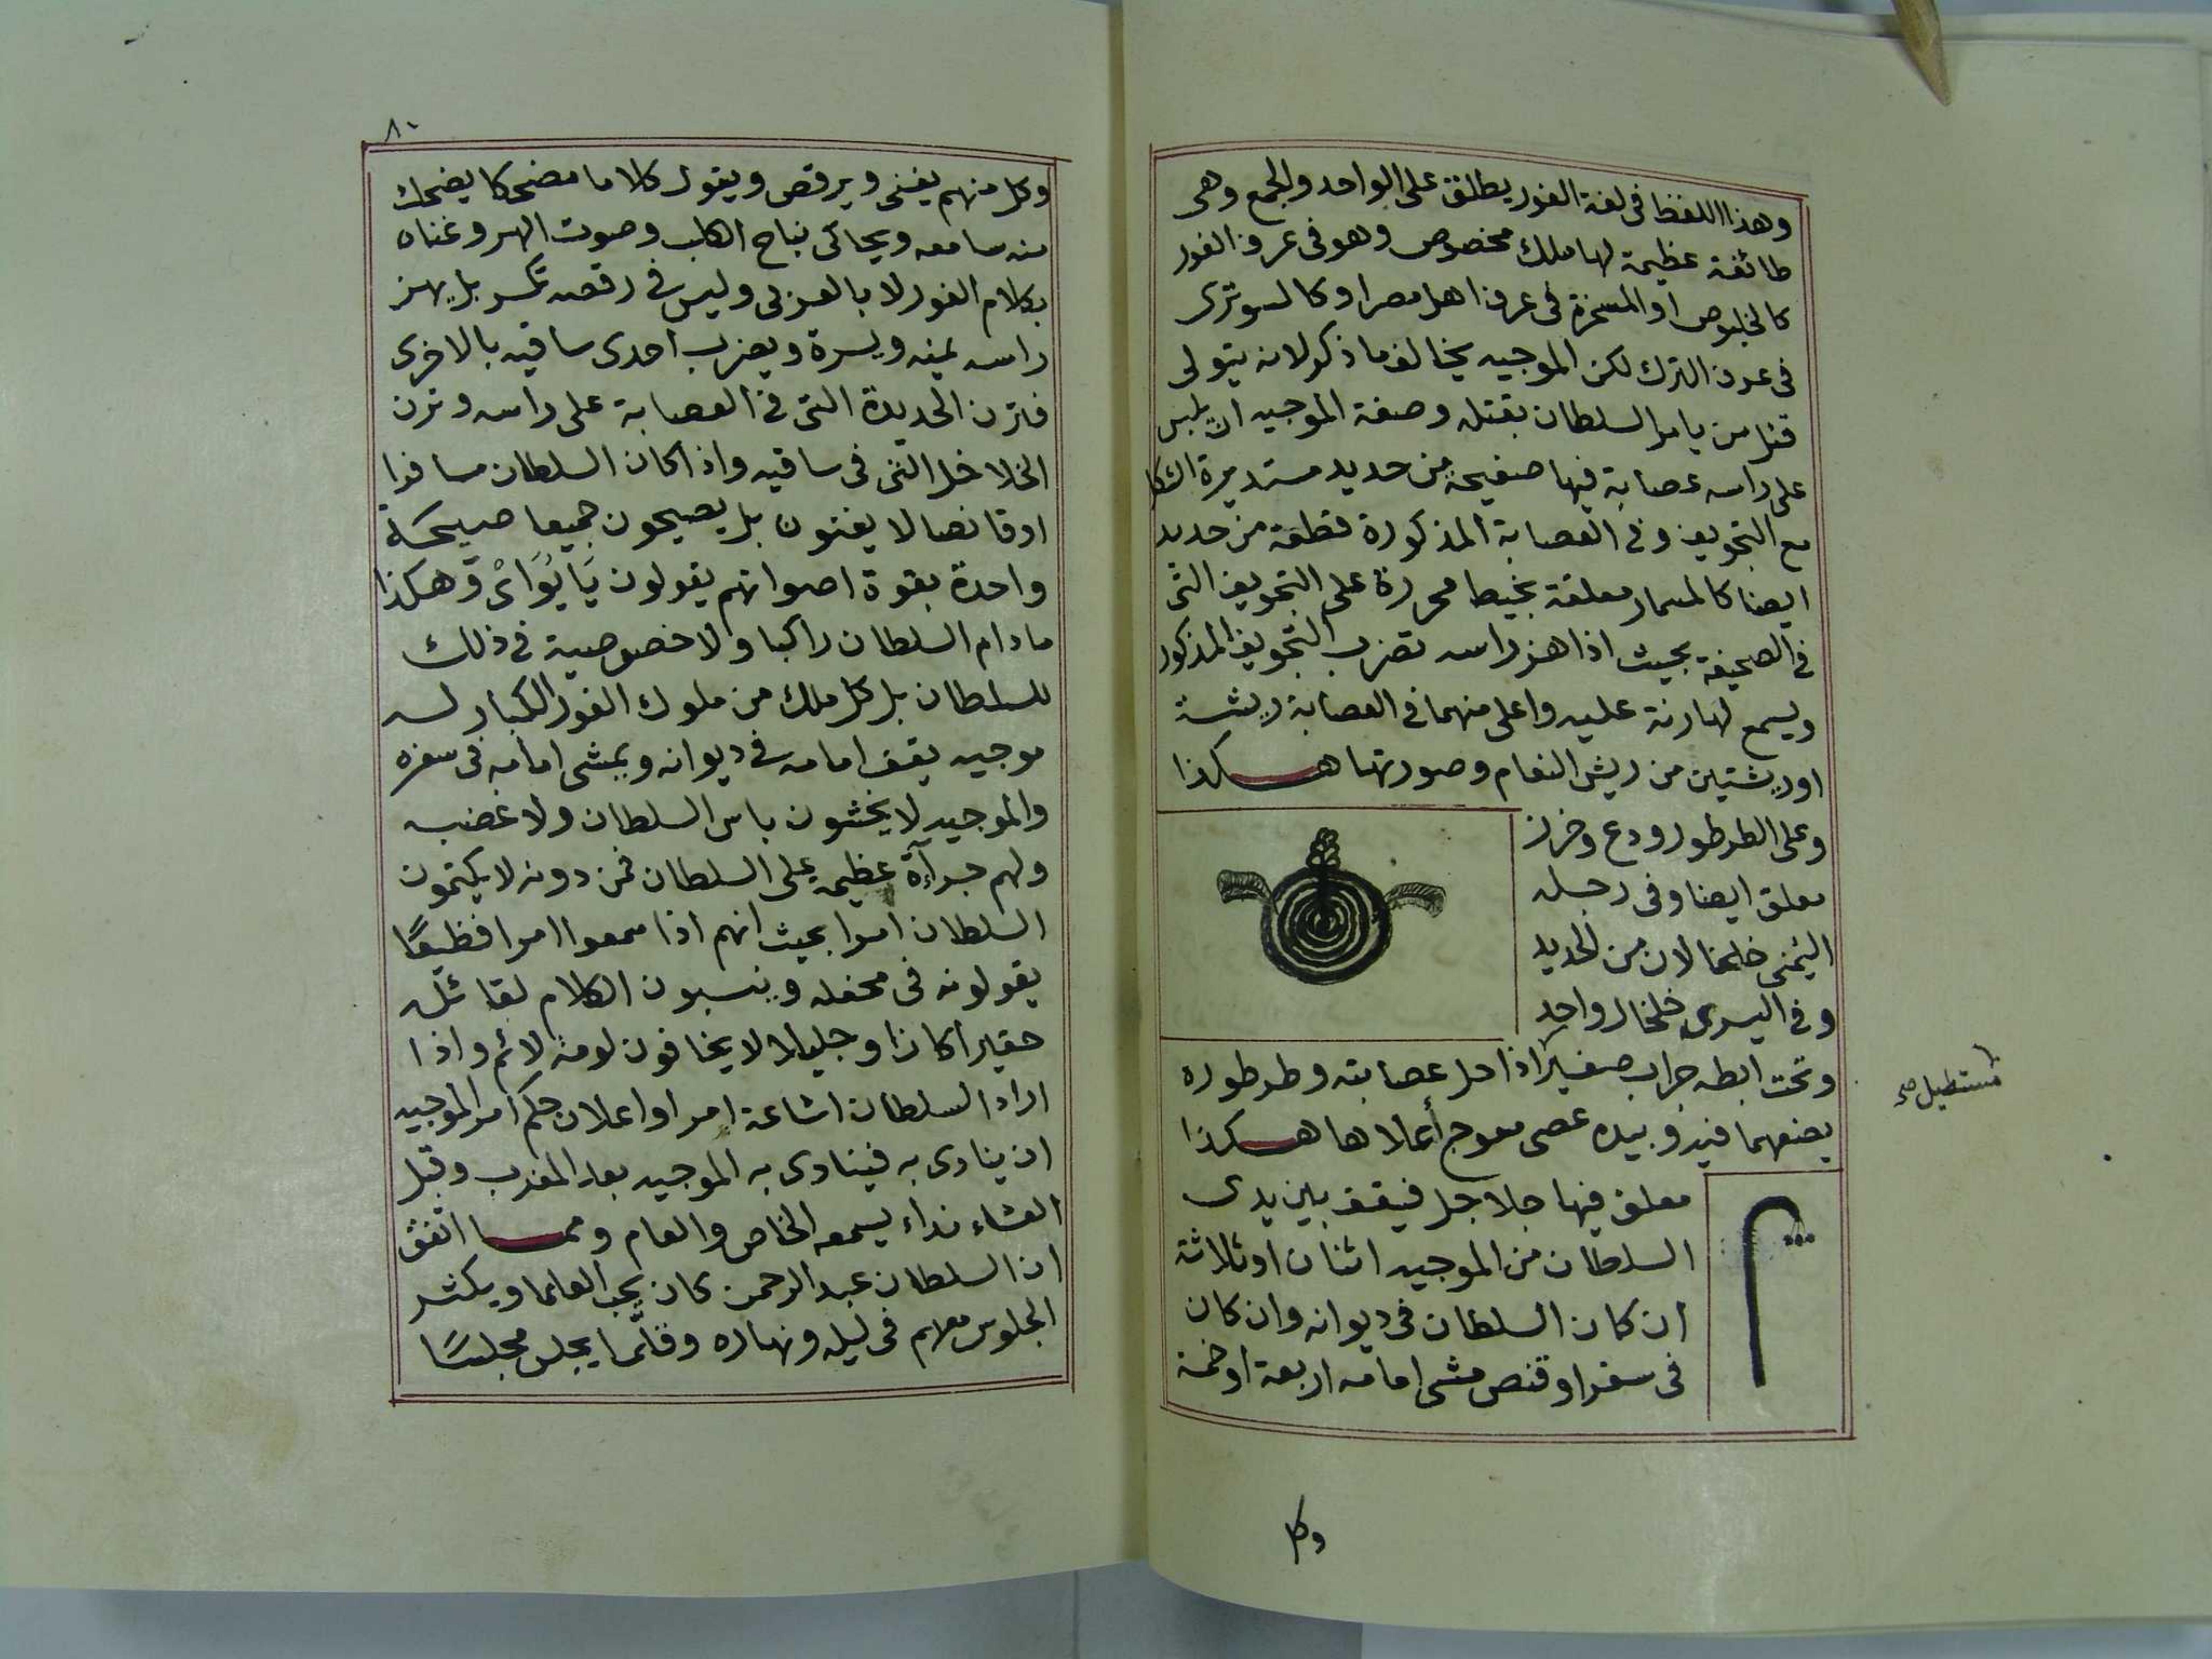 وهذا اللفظ فى لغة الفور يطلق على الواحد والجمع وهى
طائفة عظيمة لها ملك مخصوص وهو فى عرف الفور
كالخلبوص او المسخرة فى عرف اهل مصر او كالسوترى
فى عرف الترك لكن الموجيه يخالف ما ذكر لانه يتولى
قتل من يامر السلطان بقتله وصفة الموجيه ان يلبس
على راسه عصابة فيها صفيحة من حديد مستديرة الشكل
مع التجويف وفى العصابة المذكورة قطعة من حديد
ايضا كالمسمار معلقة بخيط محررة على التجويف التى
فى الصحيفة بحيث اذا هز راسه تضرب التجويف المذكور
ويسمع لها رنة عليه واعلى منهما فى العصابة ريشة
او ريشتين من ريش النعام وصورتها هكذا
وعلى الطرطور ودع وخرز
معلق ايضا وفى رجله
اليمنى خلخالان من الحديد
وفى اليسرى خلخال واحد
وتحت ابطه جراب صغير اذا حل عصابته وطرطوره
مستطيل صح
يضعهما فيه وبيده عصى معوج أعلاها هكذا
معلق فيها جلاجل فيقف بين يدى
السلطان من الموجيه اثنان او ثلاثة
ان كان السلطان فى ديوانه وان كان
فى سفر او قنص مشى امامه اربعة او خمسة
وكل
٨٠
وكل منهم يغنى ويرقص ويقول كلاما مضحكا يضحك
منه سامعه ويحاكى نباح الكلب وصوت الهر وغناه
بكلام الفور لا بالعربى وليس فى رقصه تكسر بل يهز
راسه يمنه ويسرة ويضرب احدى ساقيه بالاخرى
فترن الحديدة التى فى العصابة على راسه وترن
الخلاخل التى فى ساقيه واذا كان السلطان مسافرا
او قانصا لا يغنون بل يصيحون جميعا صيحة
واحدة بقوة اصواتهم يقولون يَا يُوَاىْ وهكذا
ما دام السلطان راكبا ولا خصوصية فى ذلك
للسلطان بل كل ملك من ملوك الفور الكبار له
موجيه يقف امامه فى ديوانه ويمشى امامه فى سفره
والموجيه لا يخشون باس السلطان ولا غضبه
ولهم جرآءة عظيمة على السلطان فمن دونه لا يكتمون
السلطان امرا بحيث انهم اذا سمعوا امرا فظيعًا
يقولونه فى محفله وينسبون الكلام لقائله
حقيرا كان او جليلا لا يخافون لومة لائم واذا
اراد السلطان اشاعة امر او اعلان حكم امر الموجيه
ان ينادى به فينادى به الموجيه بعد المغرب وقبل
العشاء نداء يسمعه الخاص والعام ومما اتفق
ان السلطان عبد الرحمن كان يحب العلما ويكثر
الجلوس معهم فى ليله ونهاره وقلّما يجلس مجلسًا